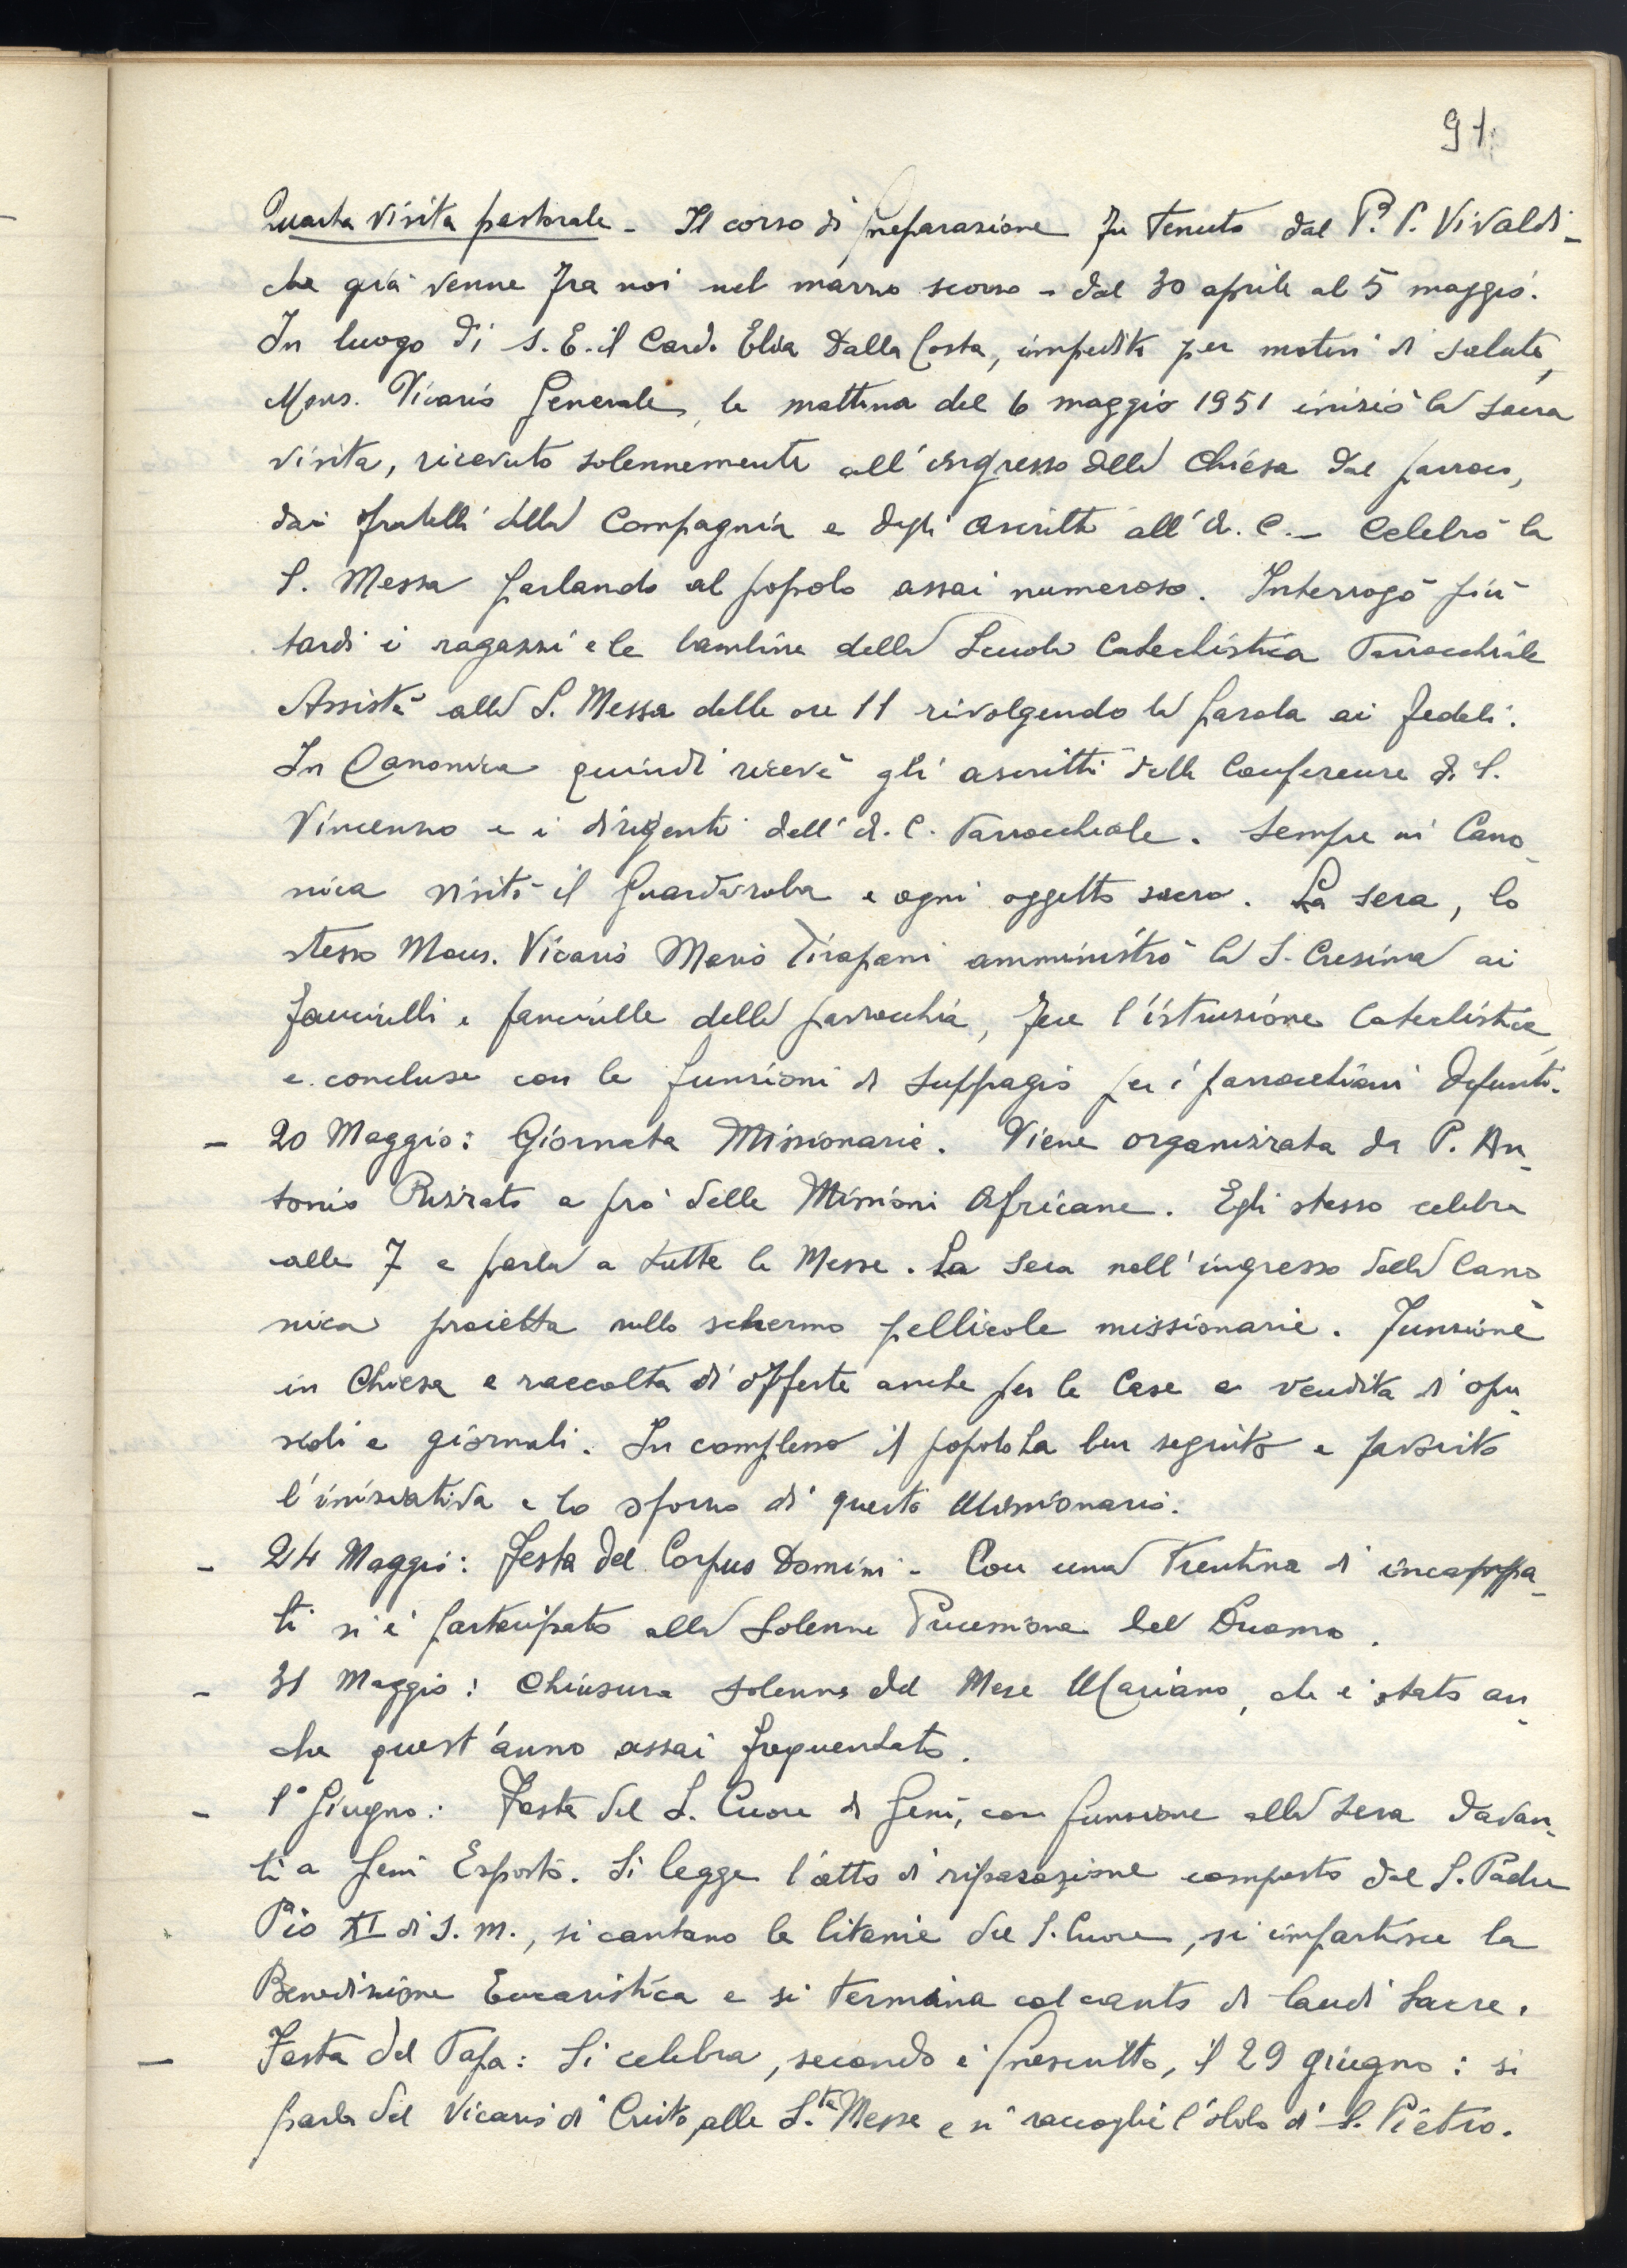 91.
Quarta visita pastorale - Il corso di preparazione fu tenuto dal P. P. Vivaldi -
che già venne fra noi nel marzo scorso - dal 30 aprile al 5 maggio.
In luogo di S. E. il Card. Elia Dalla Costa, impedito per motivi di salute,
Mons. Vicario Generale, la mattina del 6 maggio 1951 iniziò la sacra
visita, ricevuto solennemente all'ingresso della Chiesa dal parroco,
dai fratelli della Compagnia e dagli ascritti all'A. C. - Celebrò la
S. Messa parlando al popolo assai numeroso. Interrogò più
tardi i ragazzi e le bambine della Scuola Catechistica Parrocchiale
Assistè alla S. Messa delle ore 11 rivolgendo la parola ai fedeli.
In Canonica quindi ricevè gli ascritti delle Conferenze di S.
Vincenzo e i dirigenti dell'A. C. Parrocchiale. Sempre in Cano-
nica visitò il guardaroba e ogni oggetto sacro. La sera, lo
stesso Mons. Vicario Mario Tirapani amministrò la S. Cresima ai
fanciulli e fanciulle della parrocchia, fece l'istruzione Catechistica,
e concluse con le funzioni di suffragio per i parrocchiani defunti.
- 20 Maggio: Giornata Missionaria. Viene organizzata da P. An-
tonio Pizzato a prò delle Missioni Africane. Egli stesso celebra
alle 7 e parla a tutte le Messe. La sera nell'ingresso della Cano
nica proietta sullo schermo pellicole missionarie. Funzione
in Chiesa e raccolta di offerte anche per le Case e vendita di opu-
scoli e giornali. In complesso il popolo ha ben seguito e favorito
l'iniziativa e lo sforzo di questo Missionario.
- 24 Maggio: Festa del Corpus Domini - Con una trentina di incappa-
ti si è partecipato alla solenne Processione del Duomo.
- 31 Maggio: Chiusura solenne del Mese Mariano, che è stato an-
che quest'anno assai frequentato.
- 1° Giugno: Festa del S. Cuore di Gesù, con funzione alla sera davan-
ti a Gesù Esposto. Si legge l'atto di riparazione composto dal S. Padre
Pio XI di s. m., si cantano le litanie del S. Cuore, si impartisce la
Benedizione Eucaristica e si termina col canto di laudi sacre.
- Festa del Papa: Si celebra, secondo è prescritto, il 29 giugno: si
parla del Vicario di Cristo alle S.te Messe e si raccoglie l'obolo di S. Pietro.